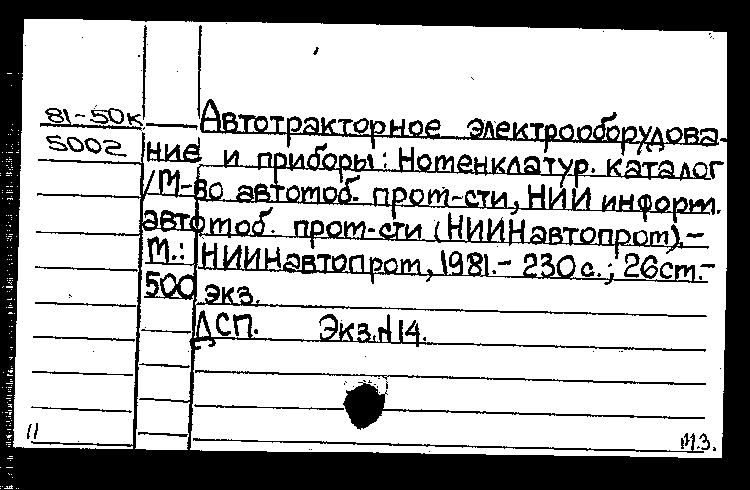 81-50к
5002
Автотракторное электрооборудова-
ние и приборы: Номенклатур. каталог
/М-во автомоб. пром-сти, НИИ информ.
автомоб. пром-сти (НИИНавтопром).-
М.: НИИНавтопром, 1981.- 230 с.; 26см.-
500 экз.
ДСП. Экз.N14.
11
М.З.